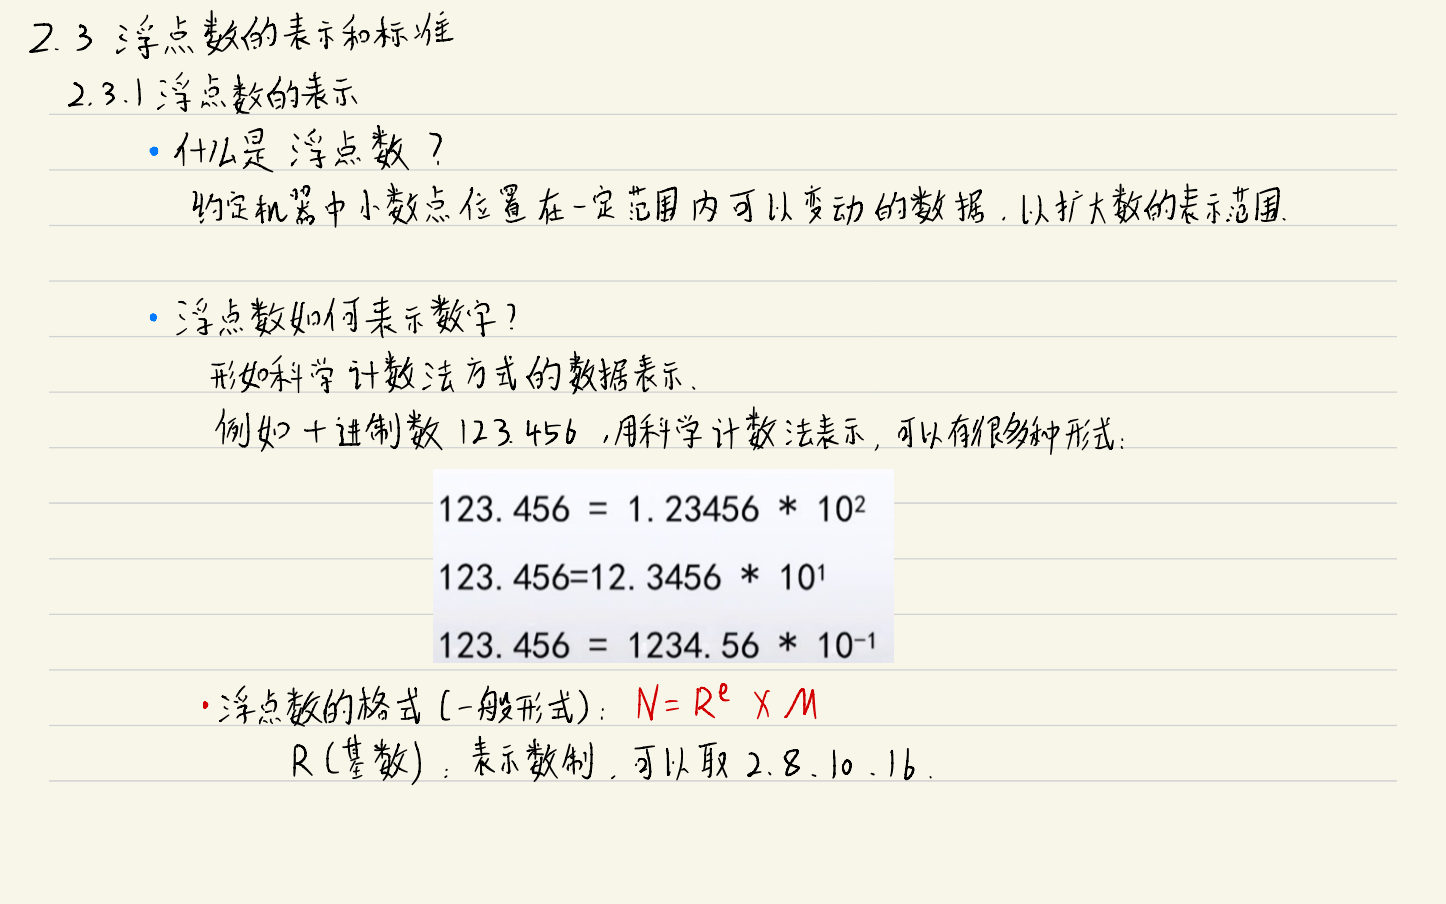 2.3 浮点数的表示和标准
2.3.1 浮点数的表示
• 什么是浮点数？
约定机器中小数点位置在一定范围内可以变动的数据、以扩大数的表示范围.
• 浮点数如何表示数字？
形如科学计数法方式的数据表示、
例如十进制数 123.456 ,用科学计数法表示, 可以有很多种形式:
123.456 = 1.23456 * 10²
123.456=12.3456 * 10¹
123.456 = 1234.56 * 10⁻¹
• 浮点数的格式 (一般形式): N = Rᵉ × M
R (基数): 表示数制、可以取 2、8、10、16.